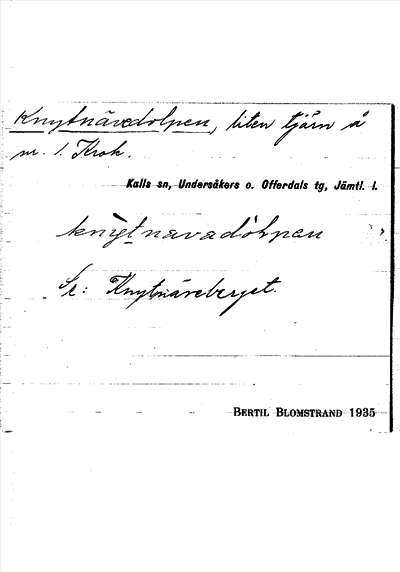 Knytnävedolpen, liten tjärn å
nr. 1. Krok.
Kalls sn, Undersåkers o. Offerdals tg, Jämtl. l.
knytnavadolpen
Se: Knytnäveberget.
BERTIL BLOMSTRAND 1935